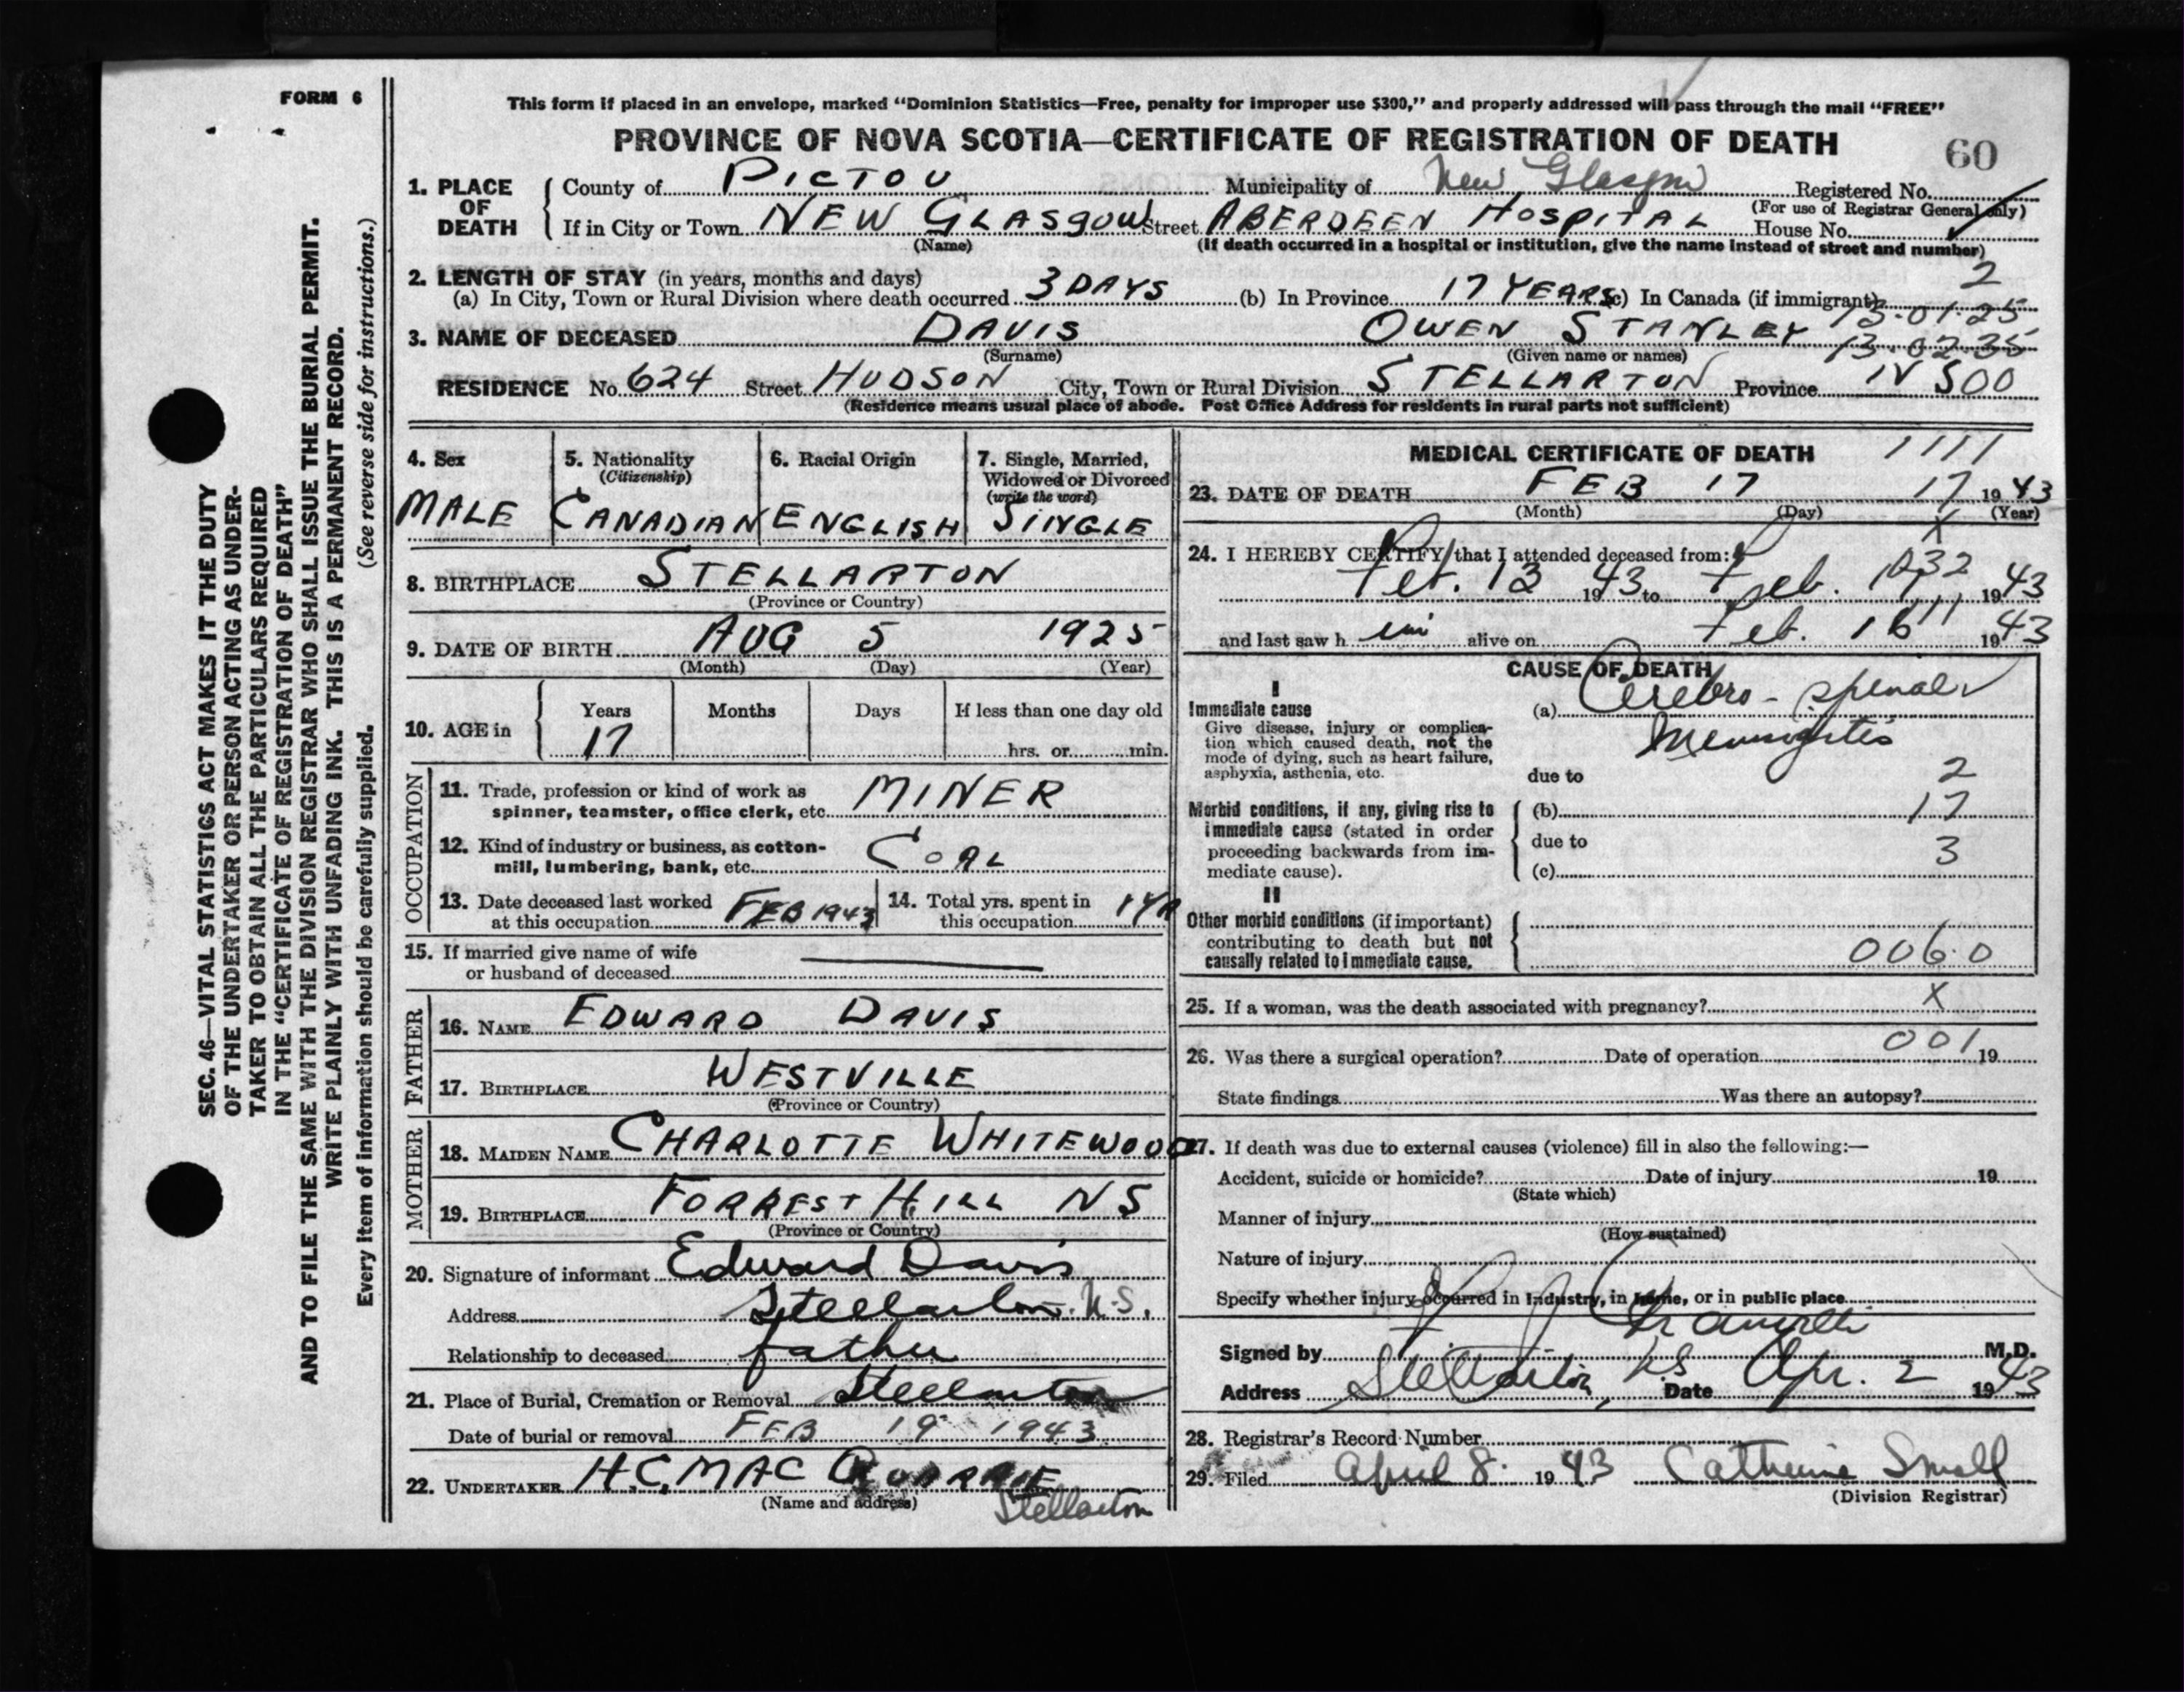 FORM 6
This form if placed in an envelope, marked "Dominion Statistics—Free, penalty for improper use $300," and properly addressed will pass through the mail "FREE"
PROVINCE OF NOVA SCOTIA—CERTIFICATE OF REGISTRATION OF DEATH
60
1. PLACE OF DEATH
County of PICTOU Municipality of New Glasgow Registered No.
(For use of Registrar General only)
If in City or Town NEW GLASGOW Street ABERDEEN HOSPITAL House No.
(Name) (If death occurred in a hospital or institution, give the name instead of street and number)
2. LENGTH OF STAY (in years, months and days) 2
(a) In City, Town or Rural Division where death occurred 3 DAYS (b) In Province 17 YEARS (c) In Canada (if immigrant)
13-01-25
3. NAME OF DECEASED DAVIS OWEN STANLEY 13-02-35
(Surname) (Given name or names)
RESIDENCE No. 624 Street HUDSON City, Town or Rural Division STELLARTON Province NS 00
(Residence means usual place of abode. Post Office Address for residents in rural parts not sufficient)
4. Sex 5. Nationality (Citizenship) 6. Racial Origin 7. Single, Married, Widowed or Divorced (write the word)
MALE CANADIAN ENGLISH SINGLE
8. BIRTHPLACE STELLARTON
(Province or Country)
9. DATE OF BIRTH AUG 5 1925
(Month) (Day) (Year)
10. AGE in Years Months Days If less than one day old
17 hrs. or min.
OCCUPATION
11. Trade, profession or kind of work as
spinner, teamster, office clerk, etc. MINER
12. Kind of industry or business, as cotton-
mill, lumbering, bank, etc. COAL
13. Date deceased last worked
at this occupation FEB 1943
14. Total yrs. spent in
this occupation 1 YR
15. If married give name of wife
or husband of deceased
FATHER
16. NAME EDWARD DAVIS
17. BIRTHPLACE WESTVILLE
(Province or Country)
MOTHER
18. MAIDEN NAME CHARLOTTE WHITEWOOD
19. BIRTHPLACE FORREST HILL NS
(Province or Country)
20. Signature of informant Edward Davis
Address Stellarton. N.S.
Relationship to deceased father
21. Place of Burial, Cremation or Removal Stellarton
Date of burial or removal FEB 19 1943
22. UNDERTAKER H.C. MAC QUARRIE
(Name and address) Stellarton
MEDICAL CERTIFICATE OF DEATH 1111
23. DATE OF DEATH FEB 17 17 1943
(Month) (Day) (Year)
X
24. I HEREBY CERTIFY that I attended deceased from:
Feb. 13 1943 to Feb. 1943
and last saw h im alive on Feb. 16 1943
CAUSE OF DEATH
I
Immediate cause
Give disease, injury or complica-
tion which caused death, not the
mode of dying, such as heart failure,
asphyxia, asthenia, etc.
(a) Cerebro-spinal
Meningitis
due to 2
Morbid conditions, if any, giving rise to
immediate cause (stated in order
proceeding backwards from im-
mediate cause).
(b) 17
due to
(c) 3
II
Other morbid conditions (if important)
contributing to death but not
causally related to immediate cause.
006.0
25. If a woman, was the death associated with pregnancy? X
26. Was there a surgical operation? Date of operation 001 19
State findings Was there an autopsy?
27. If death was due to external causes (violence) fill in also the following:—
Accident, suicide or homicide? Date of injury 19
(State which)
Manner of injury
(How sustained)
Nature of injury
Specify whether injury occurred in industry, in home, or in public place
Signed by M.D.
Address Stellarton, N.S Date Apr. 2 1943
28. Registrar's Record Number
29. Filed April 8 1943 Catherine Small
(Division Registrar)
SEC. 46—VITAL STATISTICS ACT MAKES IT THE DUTY
OF THE UNDERTAKER OR PERSON ACTING AS UNDER-
TAKER TO OBTAIN ALL THE PARTICULARS REQUIRED
IN THE "CERTIFICATE OF REGISTRATION OF DEATH"
AND TO FILE THE SAME WITH THE DIVISION REGISTRAR WHO SHALL ISSUE THE BURIAL PERMIT.
WRITE PLAINLY WITH UNFADING INK. THIS IS A PERMANENT RECORD.
Every item of information should be carefully supplied. (See reverse side for instructions.)